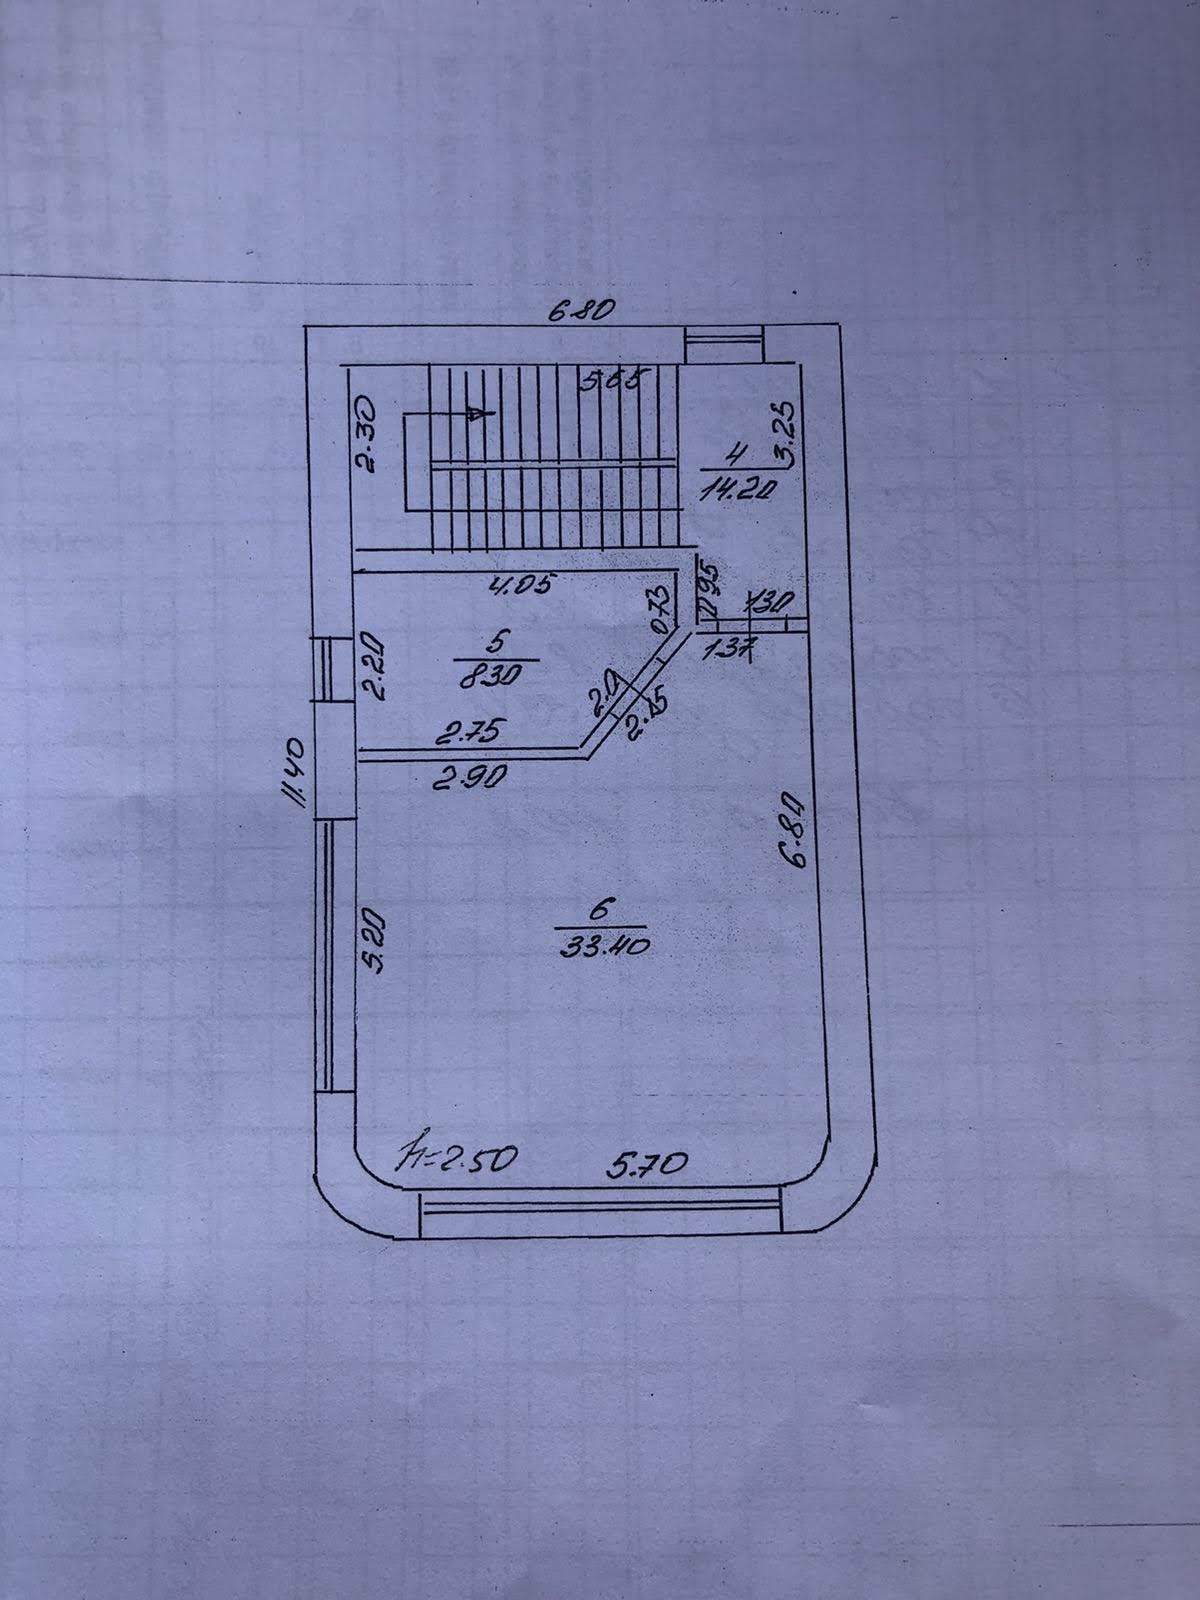 6.80
5.65
2.30
3.25
4
14.20
4.05
0.73
0.95
1.30
1.37
5
8.30
2.20
2.0
2.15
2.75
2.90
11.40
6.80
6
33.40
5.20
h=2.50
5.70